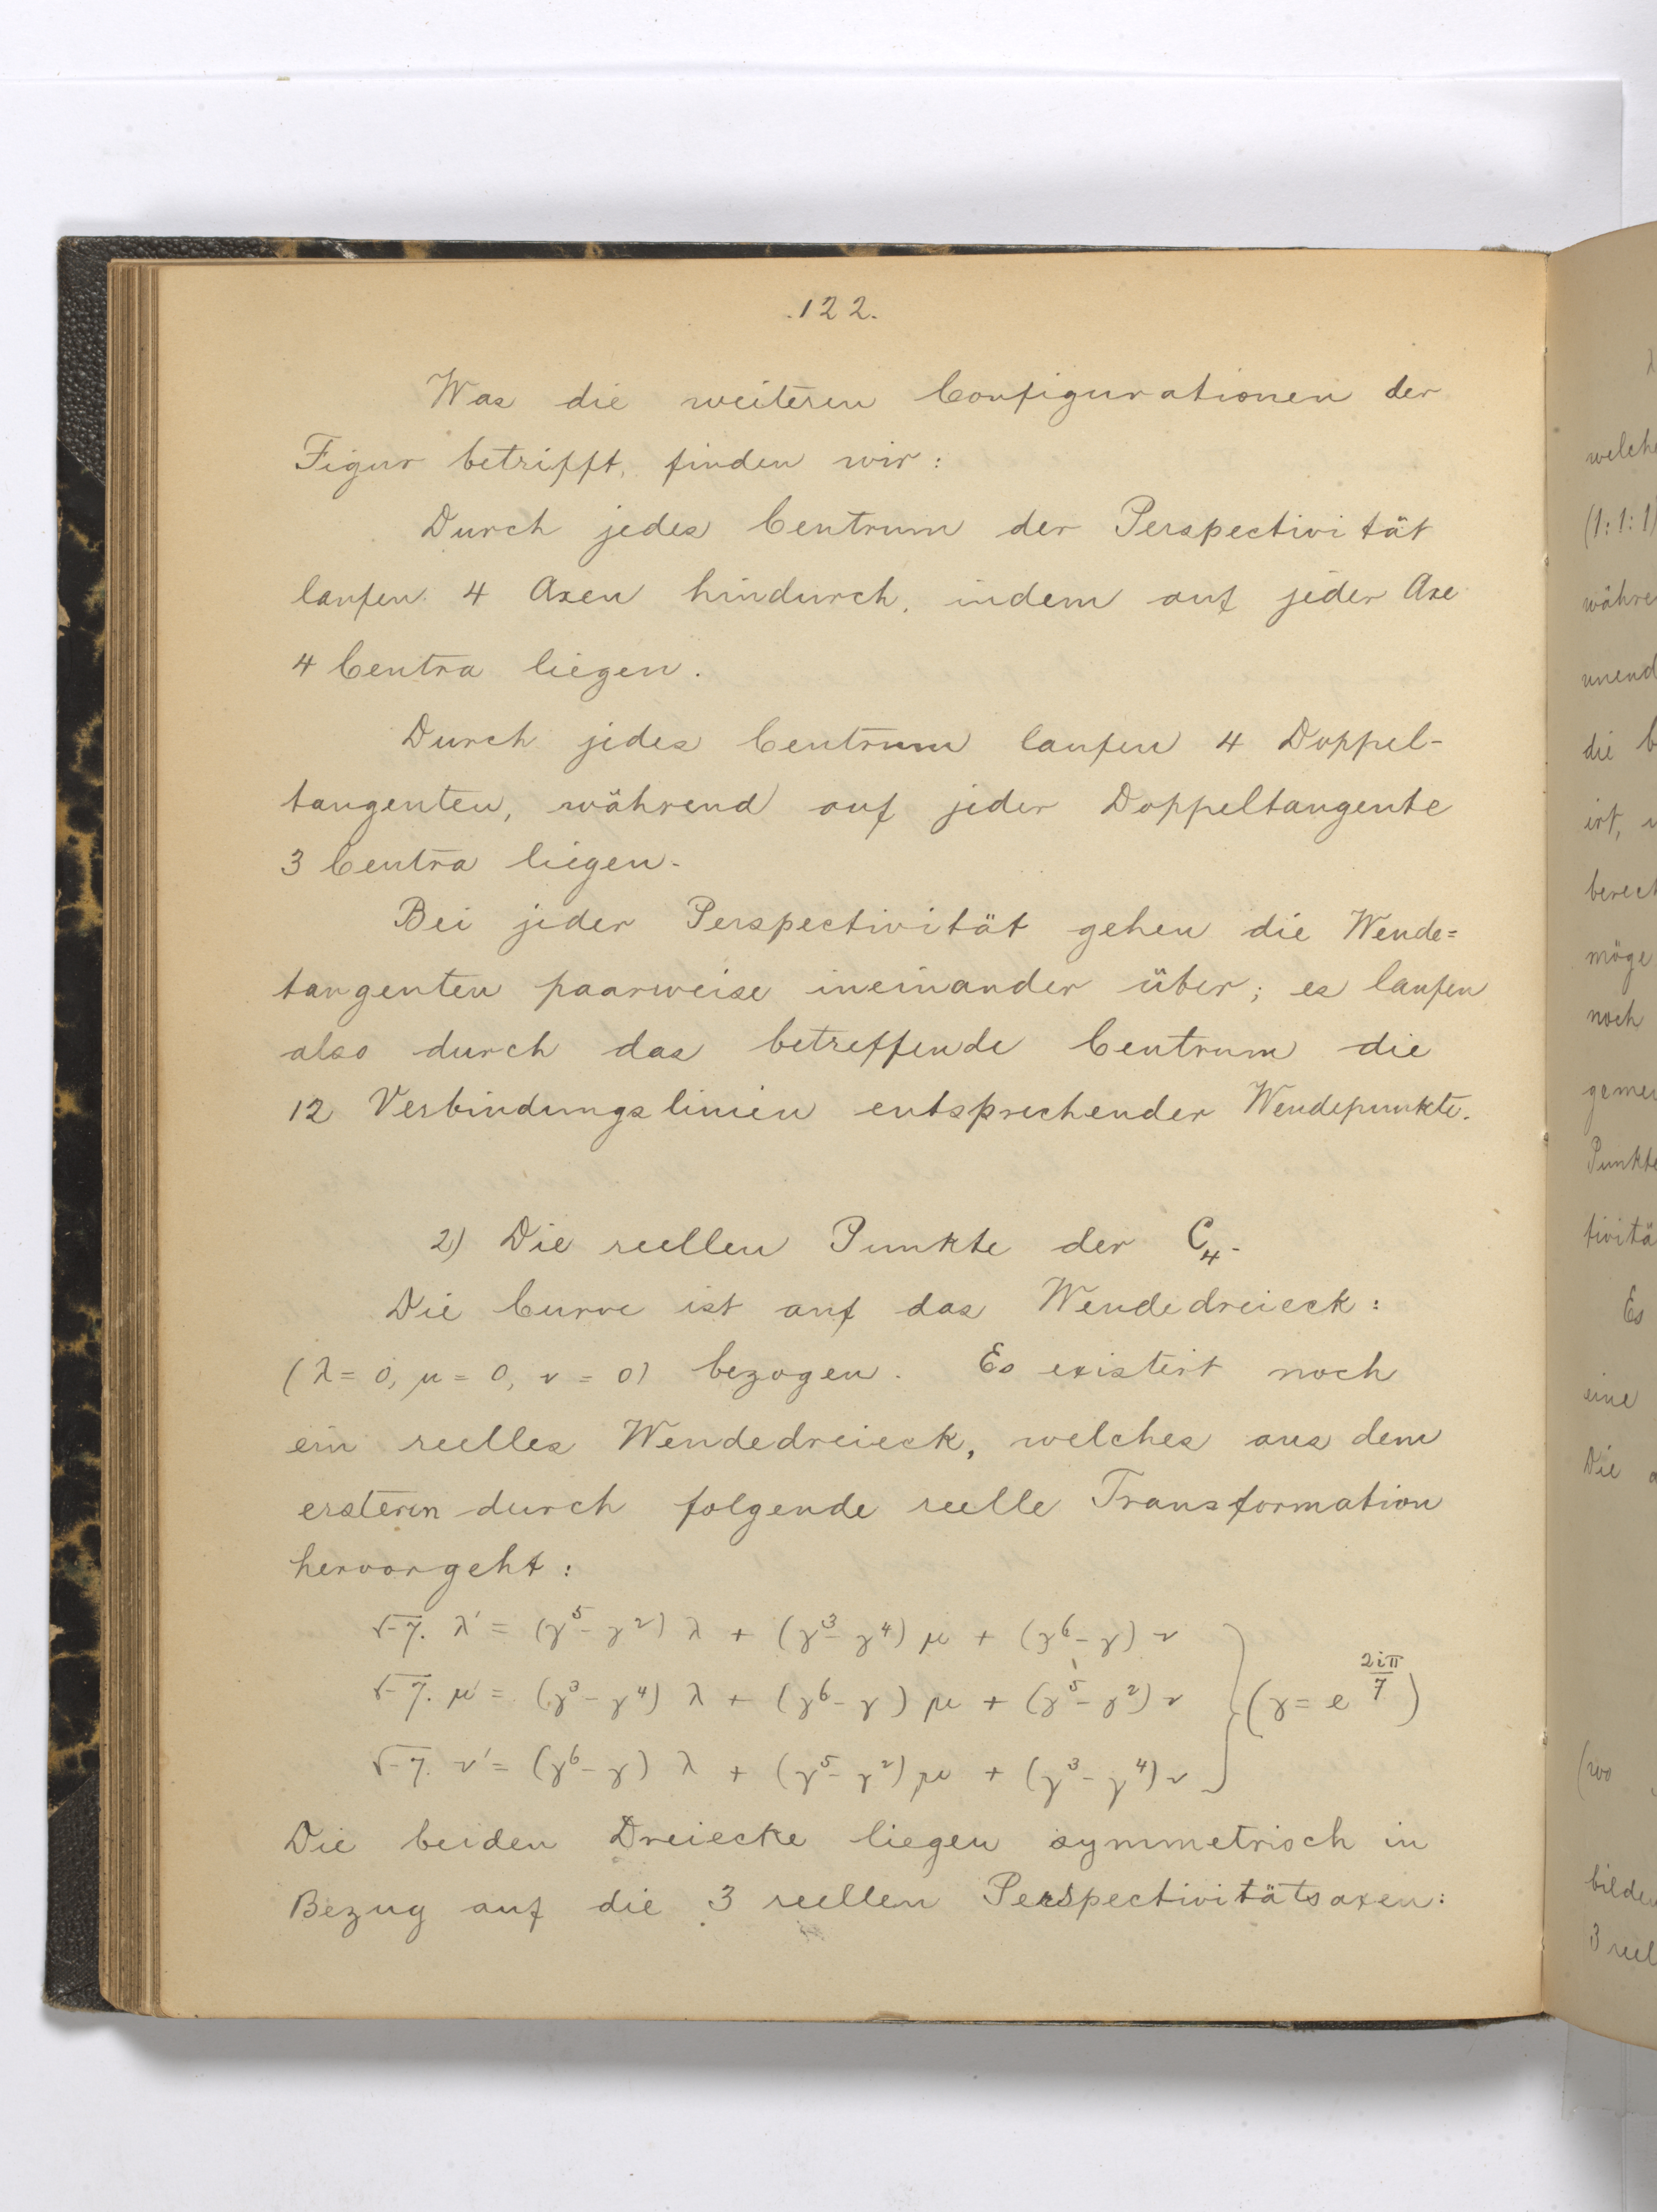 .122.
Was die weiteren Configurationen der
Figur betrifft, finden wir:
Durch jedes Centrum der Perspectivität
laufen 4 Axen hindurch, indem auf jeder Axe
4 Centra liegen.
Durch jedes Centrum laufen 4 Doppel-
tangenten, während auf jeder Doppeltangente
3 Centra liegen.
Bei jeder Perspectivität gehen die Wende=
tangenten paarweise ineinander über; es laufen
also durch das betreffende Centrum die
12 Verbindungslinien entsprechender Wendepunkte.
2) Die reellen Punkte der C₄.
Die Curve ist auf das Wendedreieck:
(λ = 0, μ = 0, ν = 0) bezogen. Es existirt noch
ein reelles Wendedreieck, welches aus dem
ersteren durch folgende reelle Transformation
hervorgeht:
√-7. λ' = (γ⁵ - γ²) λ + (γ³ - γ⁴) μ + (γ⁶ - γ) ν
√-7. μ' = (γ³ - γ⁴) λ + (γ⁶ - γ) μ + (γ⁵ - γ²) ν } (γ = e^{2iπ/7})
√-7. ν' = (γ⁶ - γ) λ + (γ⁵ - γ²) μ + (γ³ - γ⁴) ν
Die beiden Dreiecke liegen symmetrisch in
Bezug auf die 3 reellen Perspectivitätsaxen:
λ
welche
(1:1:1)
die
noch
Punkte
Es
eine
Die
(wo